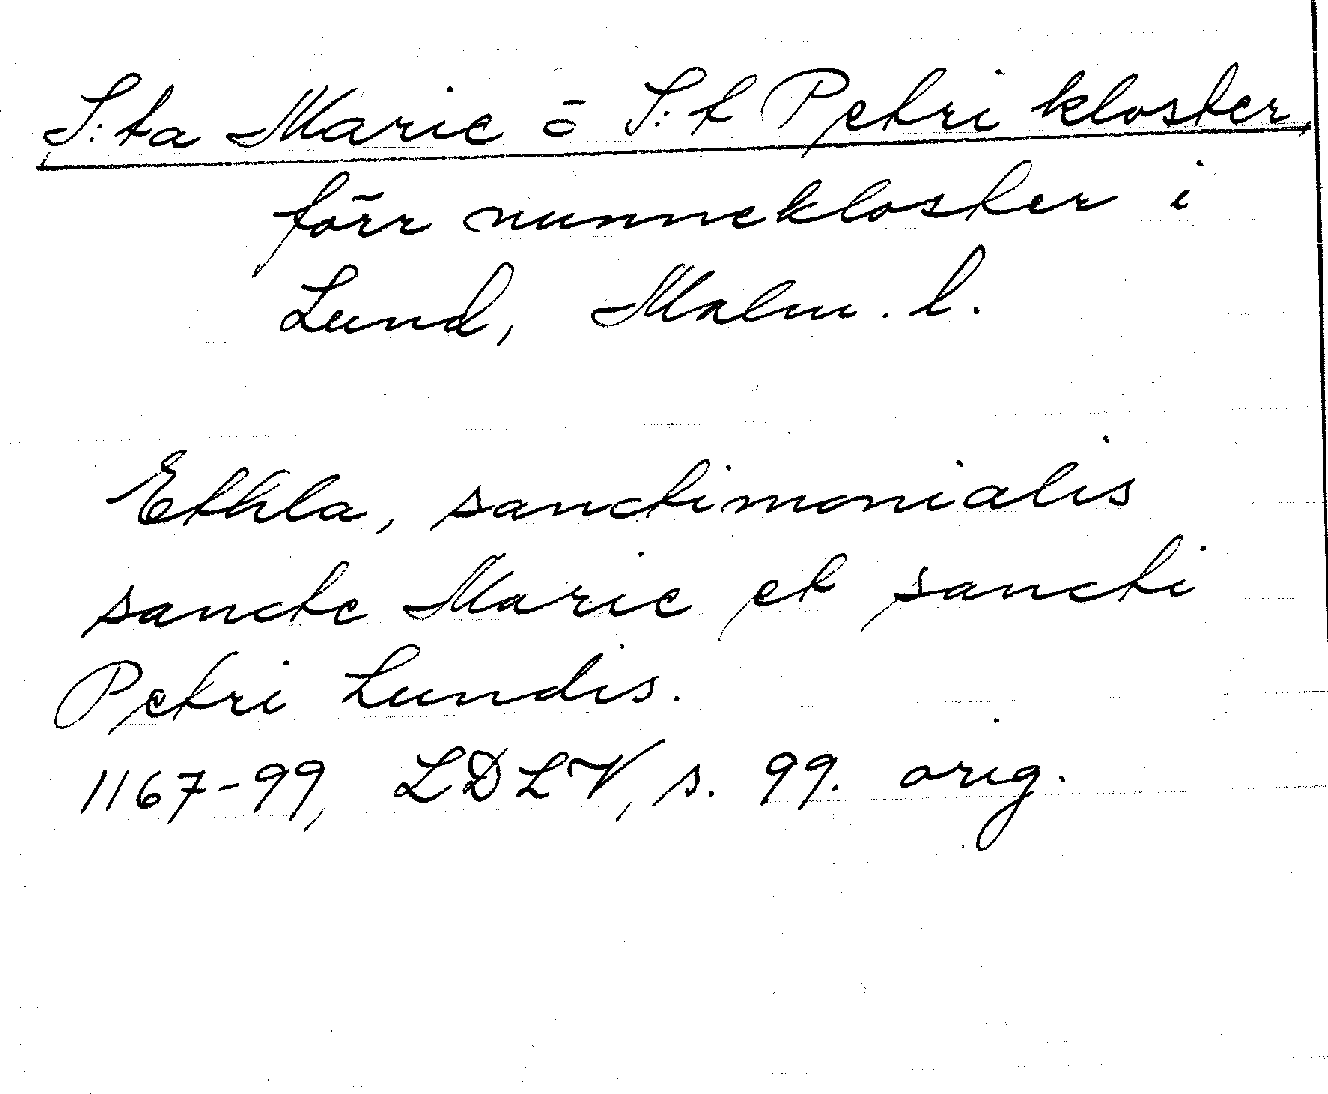 S:ta Marie o S:t Petri kloster,
förr nunnekloster i
Lund, Malm. l.
Ethla, sanctimonialis
sancte Marie et sancti
Petri Lundis.
1167-99, LDLV, s. 99. orig.